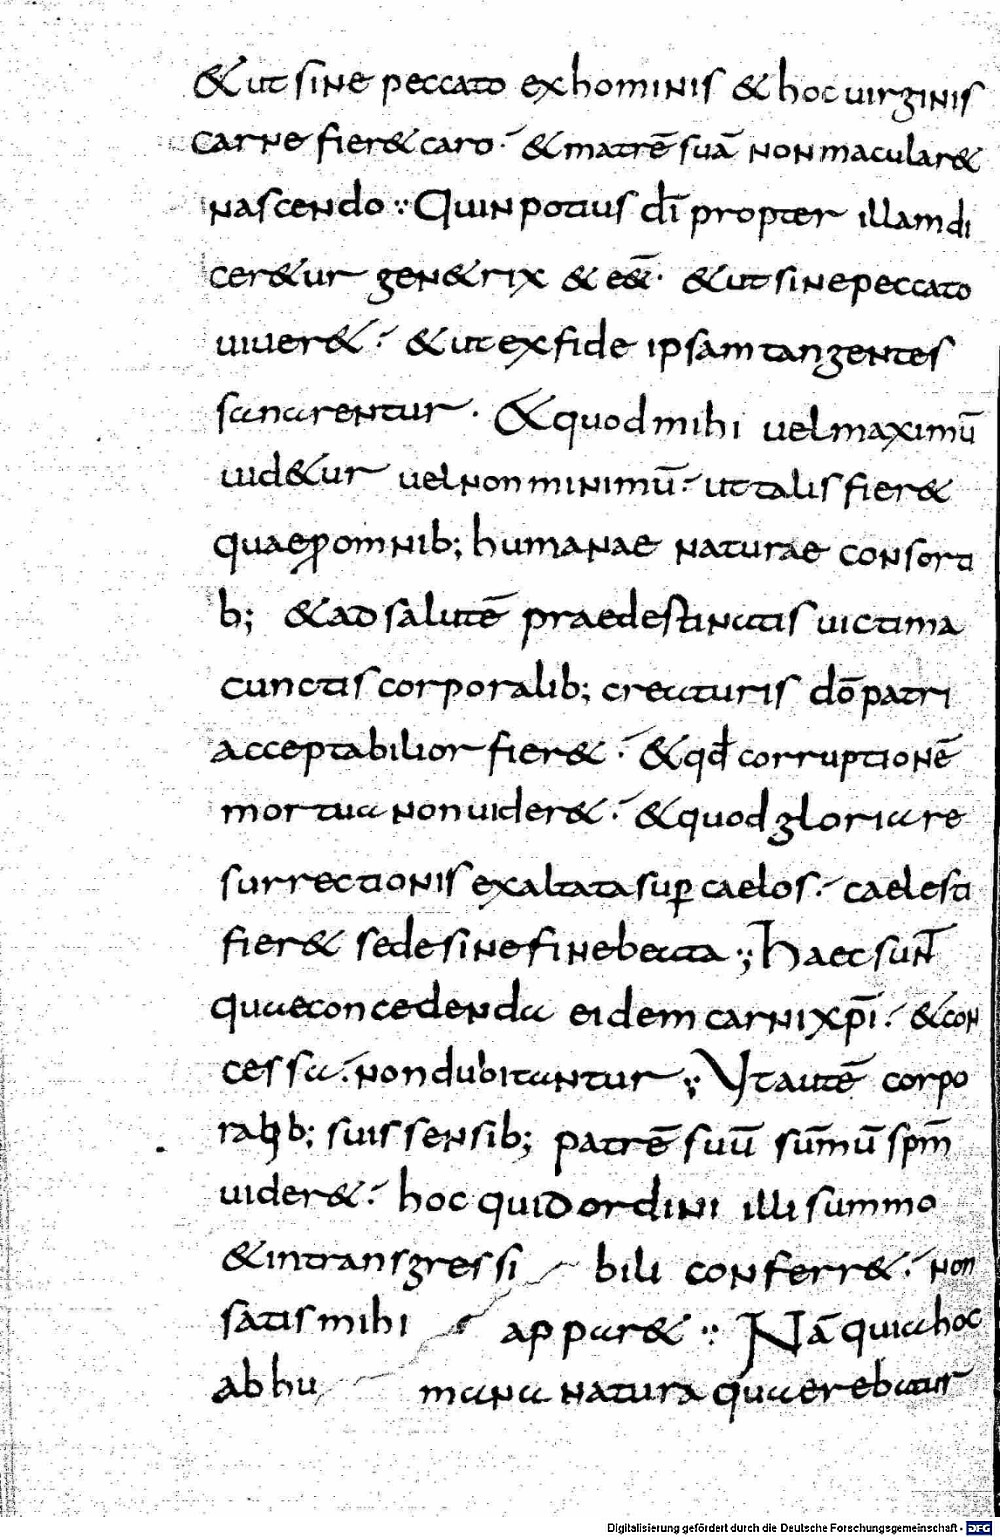 & ut sine peccato ex hominis & hoc uirginis
carne fier& caro· & matrē suā non macular&
nascendo : Quin potius dī propter illam di
cer&ur gen&rix & eēt· & ut sine peccato
uiuer& : & ut ex fide ipsam tangentes
sanarentur · & quod mihi uel maximū
uid&ur uel non minimū : ut talis fier&
quae ꝓ omnib; humanae naturae consorti
b; & ad salutē praedestinatis uictima
cunctis corporalib; creaturis dō patri
acceptabilior fier& : & qđ corruptionē
mortua non uider& : & quod gloria re
surrectionis exaltata suꝑ caelos : caelesti
fier& sede sine fine beata : Haec sunt̄
quae concedenda eidem carni xp̄i : & con
cessa : non dubitantur ; Ut autē corpo
ralib; suis sensib; patrē suū sūmū sp̄m
uider& : hoc quid ordini illi summo
& intransgressi bili conferr& : non
satis mihi appar& : Nā quia hoc
ab hu mana natura quaerebatur
Digitalisierung gefördert durch die Deutsche Forschungsgemeinschaft - DFG